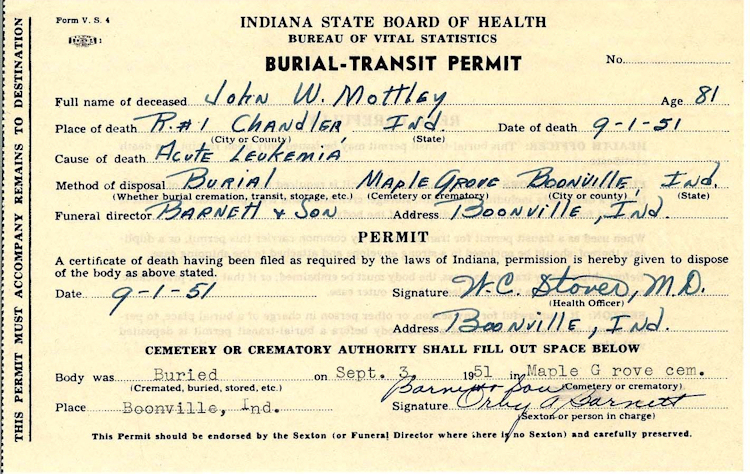 Form V. S. 4
INDIANA STATE BOARD OF HEALTH
BUREAU OF VITAL STATISTICS
BURIAL-TRANSIT PERMIT
No.
Full name of deceased John W. Mottley Age 81
Place of death R.#1 Chandler, Ind. Date of death 9-1-51
(City or County) (State)
Cause of death Acute Leukemia
Method of disposal Burial Maple Grove Boonville, Ind.
(Whether burial cremation, transit, storage, etc.) (Cemetery or crematory) (City or county) (State)
Funeral director Barnett & Son Address Boonville, Ind.
PERMIT
A certificate of death having been filed as required by the laws of Indiana, permission is hereby given to dispose
of the body as above stated.
Date 9-1-51 Signature W.C. Stover, M.D.
(Health Officer)
Address Boonville, Ind.
CEMETERY OR CREMATORY AUTHORITY SHALL FILL OUT SPACE BELOW
Body was Buried on Sept. 3, 1951 in Maple G rove cem.
(Cremated, buried, stored, etc.) (Cemetery or crematory)
Barnett & Son
Place Boonville, Ind. Signature Orby A Barnett
(Sexton or person in charge)
This Permit should be endorsed by the Sexton (or Funeral Director where there is no Sexton) and carefully preserved.
THIS PERMIT MUST ACCOMPANY REMAINS TO DESTINATION